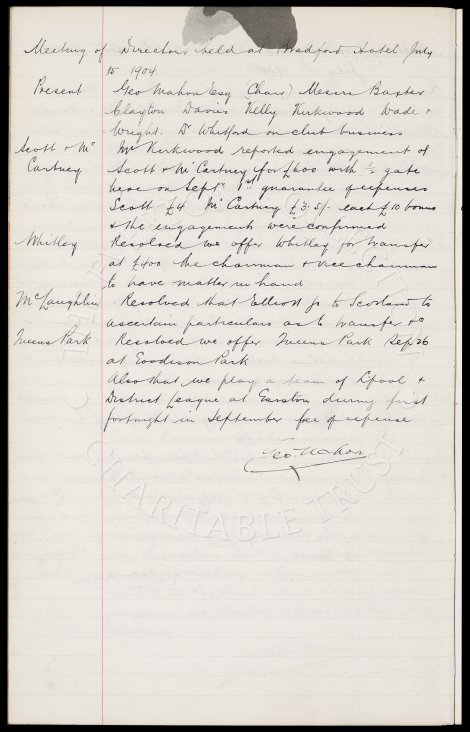 Meeting of Directors held at Bradford Hotel July
15 1904.
Present Geo Mahon Esq (Chair) Messrs Baxter
Clayton Davies Kelly Kirkwood Wade &
Wright. Dr Whitford on club business
Scott & Mc Mr Kirkwood reported engagement of
Cartney Scott & McCartney for £600 with ½ gate
here on Sept 1st guarantee of expenses
Scott £4 McCartney £3.5/- each £10 bonus
& the engagements were confirmed
Whitley Resolved we offer Whitley for transfer
at £400 the chairman & vice chairman
to have matter in hand
McLaughlin Resolved that Elliott go to Scotland to
ascertain particulars as to transfer &c
Queens Park Resolved we offer Queens Park Sep 26
at Goodison Park
Also that we play a team of Lpool &
District League at Garston during first
fortnight in September free of expense
Geo Mahon
CHARITABLE TRUST